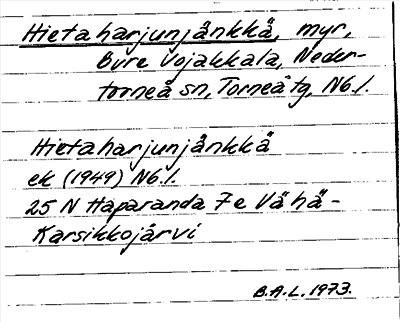 Hietaharjunjänkkä, myr,
Övre Vojakkala, Neder-
torneå sn, Torneå tg, N6.l.
Hietaharjunjänkkä
ek (1949) N6.l.
25 N Haparanda 7e Vähä-
Karsikkojärvi
B.A.L. 1973.